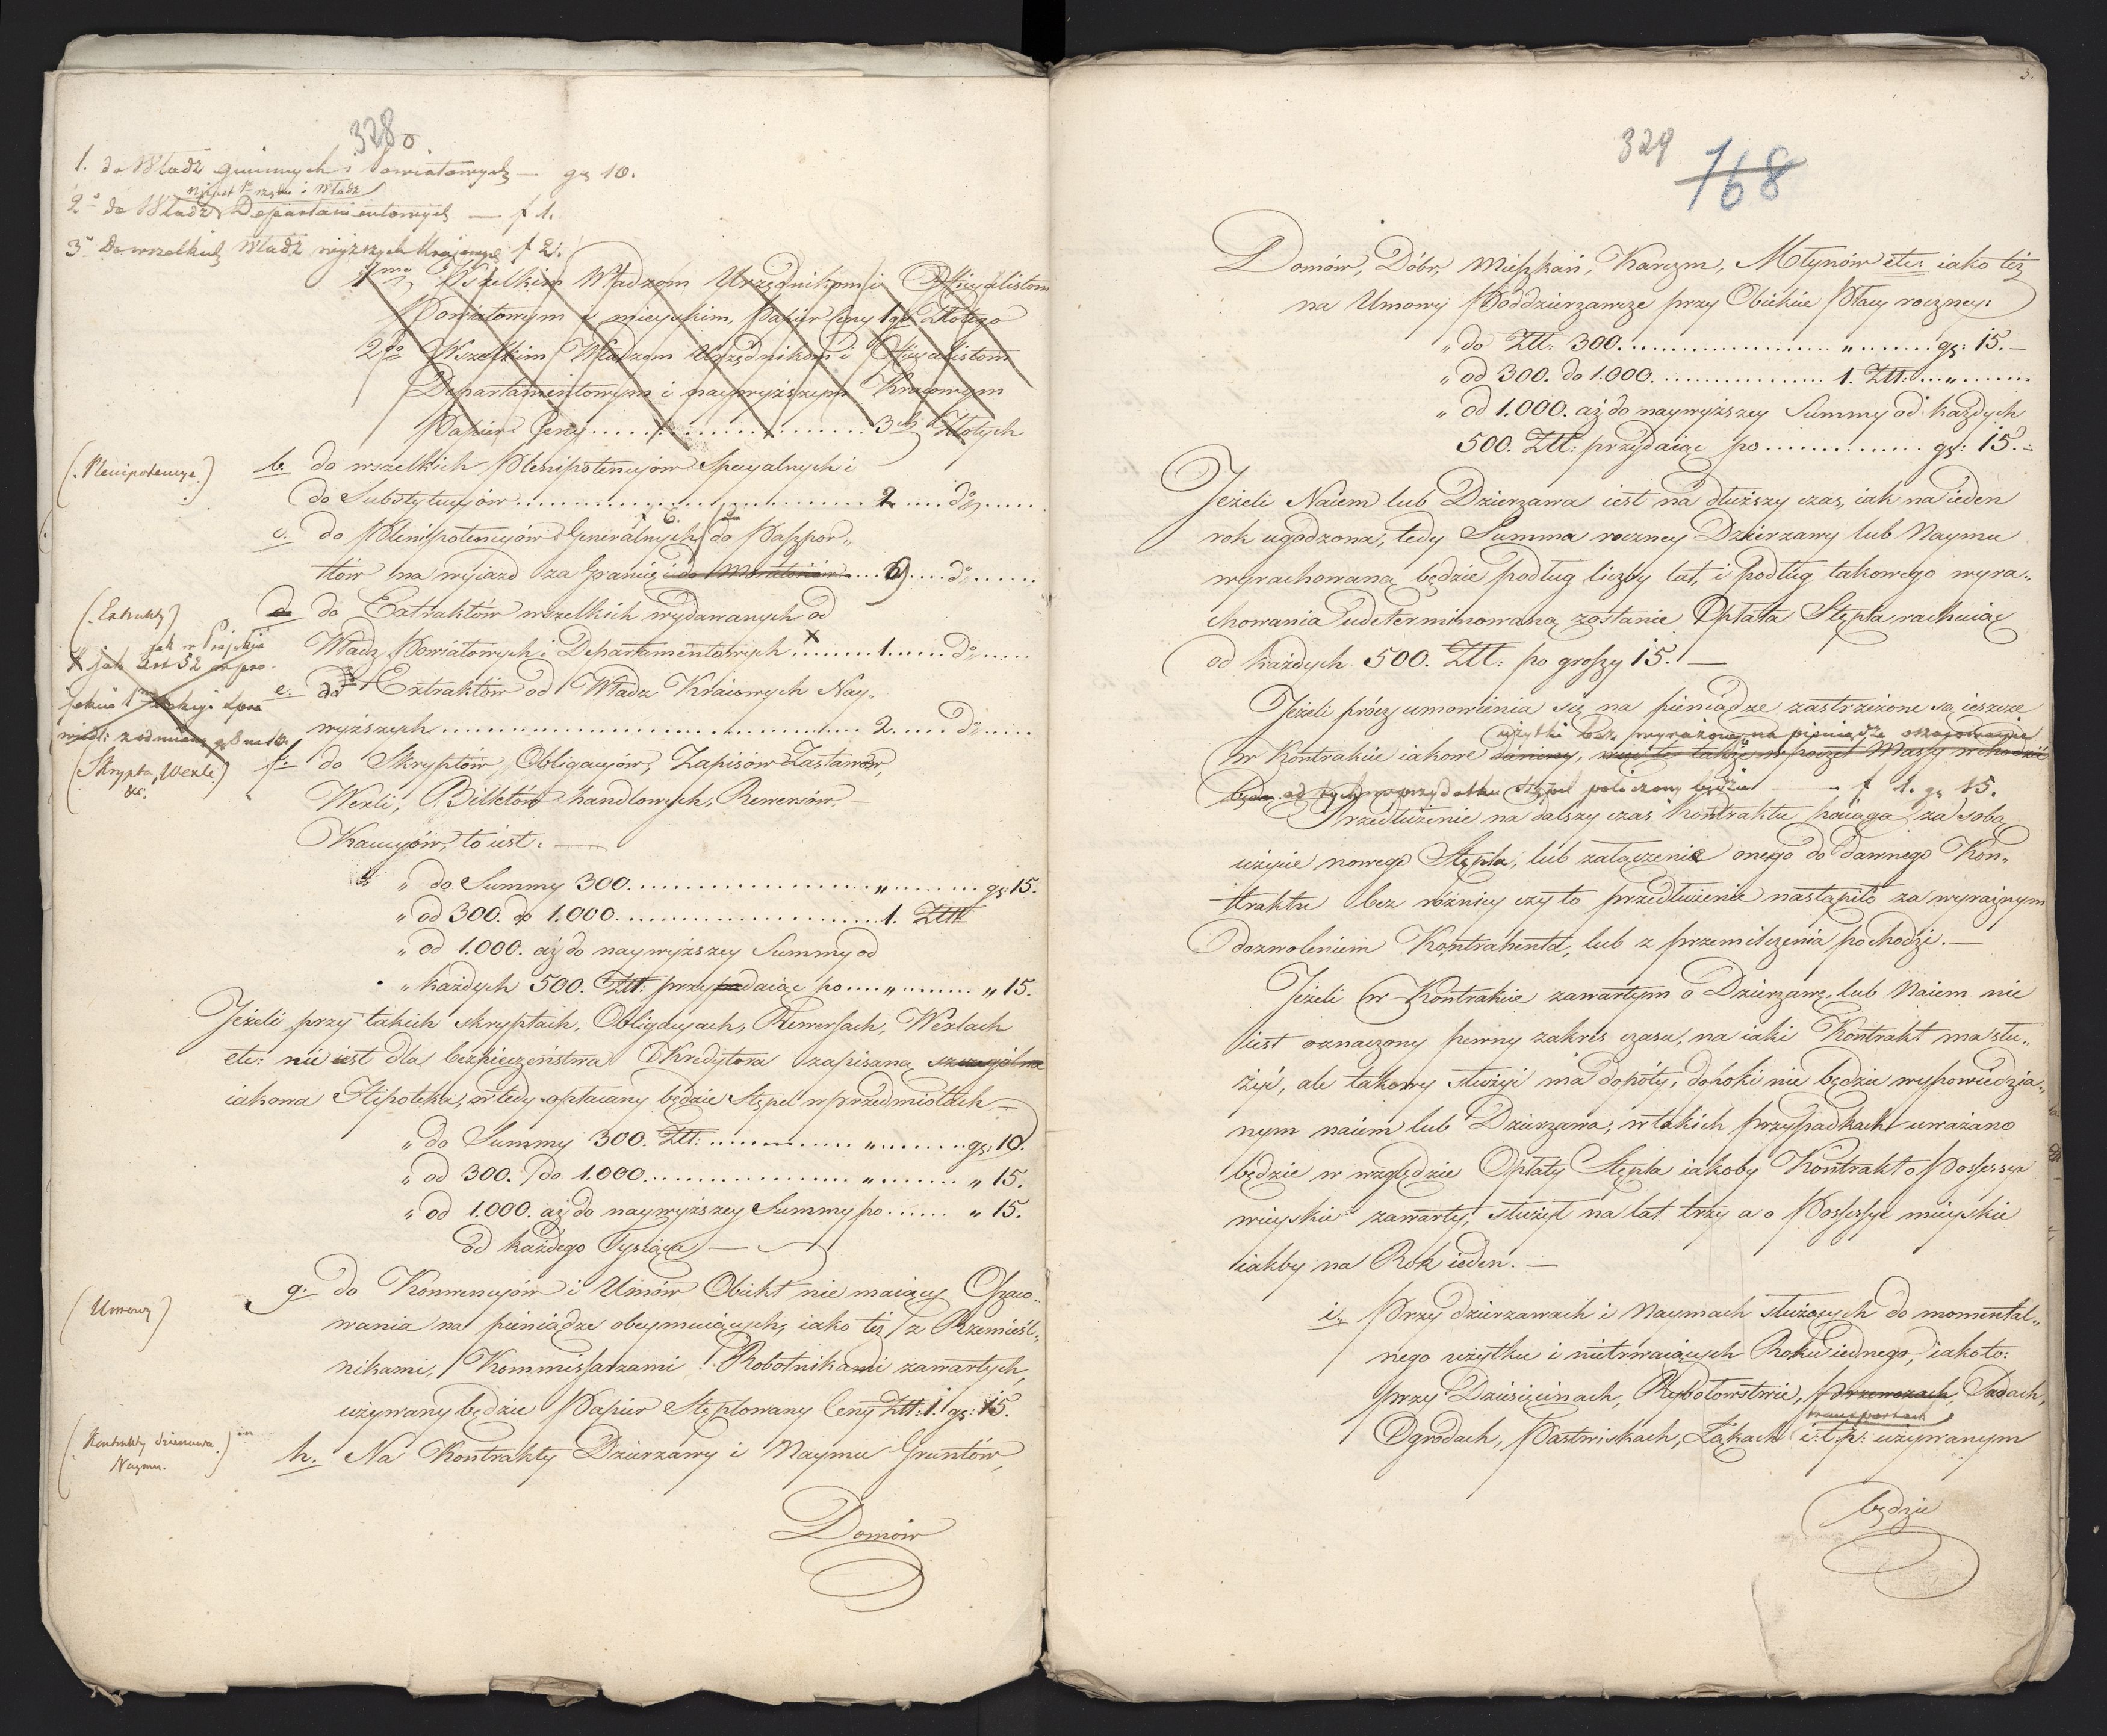 3280
1. do Władz gminnych i Powiatowych — gr 10.
2do do Władz Departamentowych — f 1.
3o Do wszelkich Władz wyższych Krajowych f 2.
1mo Wszelkim Władzom Urzędnikom i Officyalistom
Powiatowym i mieyskim, Papier Ceny 1go Złotego
2do Wszelkim Władzom Urzędnikom i Officyalistom
Departamentowym i naywyższym Kraiowym
Papier Ceny .......... 3ch Złotych
(Plenipotencye.)
b. do wszelkich Plenipotencyów Specyalnych i
do Substytucyów .......... 2 .... do ....
c. do Plenipotencyów Generalnych, do Paszpor„
tów na wyiazd za Granicę i do Moratoriów .... 6 .... do ....
(Extrakty)
d. do Extraktów wszelkich wydawanych od
Władz Powiatowych i Departamentowych ...... 1 ..... do ....
jak w Projekcie
X jak Art 52 w pro
e. do Extraktów od Władz Kraiowych Nay„
wyższych .......... 2 .... do ....
(Skrypta, Wexle.) &c.
f. do Skryptów, Obligacyów, Zapisów Zastawów,
Wexli, Billetów handlowych, Rewersów,
Kaucyów, to iest: —
„ do Summy 300. .......... „ ....... gr: 15.
„ od 300. do 1.000. .......... 1. Złł:
„ od 1.000. aż do naywyższey Summy od
„ każdych 500. Złł: przydaiąc po .... „ ....... „ 15.
Jeżeli przy takich skryptach, Obligacyach, Rewersach, Wexlach
etc: nie iest dla bezpieczeństwa Kredytora zapisaną szczególna
iakowa Hipoteka, wtedy opłacany będzie Stępel w przedmiotach —
„ do Summy 300. Złł: .......... „ ....... gr: 10.
„ od 300. do 1.000. .......... „ ....... „ 15.
„ od 1.000. aż do naywyższey Summy po ...... „ 15.
od każdego Tysiąca —
(Umowy)
g. do Konwencyów i Umów Obiekt nie maiący Szaco„
wania na pieniądze obeymuiących, iako też z Rzemieśl„
nikami, Kommissarzami i Robotnikami zawartych,
używany będzie Papier Stęplowany Ceny Złł: 1. gr: 15.
(Kontrakty dzierzaw. Naymu.)
h. Na Kontrakty Dzierzawy i Naymu Gruntów,
Domów
3.
329
168
Domów, Dóbr, Mieszkań, Karczm, Młynów etc: iako też
na Umowy Poddzierzawcze przy Obiekcie Płacy roczney:
„ do Złł: 300. .......... „ ....... gr: 15. —
„ od 300. do 1.000. .......... 1. Złł: ... „ .......
„ od 1.000. aż do naywyższey Summy od każdych
500. Złł: przydaiąc po .......... gr: 15. —
Jeżeli Naiem lub Dzierzawa iest na dłuższy czas, iak na ieden
rok ugodzona, tedy Summa roczney Dzierzawy lub Naymu
wyrachowaną będzie podług liczby lat, i podług takowego wyra„
chowania udeterminowaną zostanie Opłata Stępla rachuiąc
od każdych 500. Złł: po groszy 15. —
Jeżeli prócz umowienia się na pieniądze zastrzeżone są ieszcze
użytki bez wyrażonego na pieniądze oszacowania
w Kontrakcie iakowe daniny, więc te także w poczet Massy wchodzić
będą, od tych w przydatku Stępel policzony będzie — f 1. gr 15.
Przedłużenie na dalszy czas Kontraktu pociąga za sobą
użycie nowego Stępla, lub załączenie onego do dawnego Kon„
traktu bez różnicy czy to przedłużenie nastąpiło za wyraźnym
dozwoleniem Kontrahenta, lub z przemilczenia pochodzi. —
Jeżeli w Kontrakcie zawartym o Dzierzawę, lub Naiem nie
iest oznaczony pewny zakres czasu, na iaki Kontrakt ma słu„
żyć, ale takowy służyć ma dopóty, dopoki nie będzie wypowiedzia„
nym naiem lub Dzierzawa, w takich przypadkach uważano
będzie w względzie Opłaty Stępla iakoby Kontrakt o Possessye
wieyskie zawarty, służył na lat trzy a o Possessye mieyskie
iakby na Rok ieden. —
i. Przy dzierzawach i Naymach służących do momental„
nego użytku i nietrwaiących Roku iednego, iako to:
przy Dziesięcinach, Rybołowstwie, przewozach, Sadach,
transportach
Ogrodach, Pastwiskach, Łąkach i: t: p: używanym
będzie